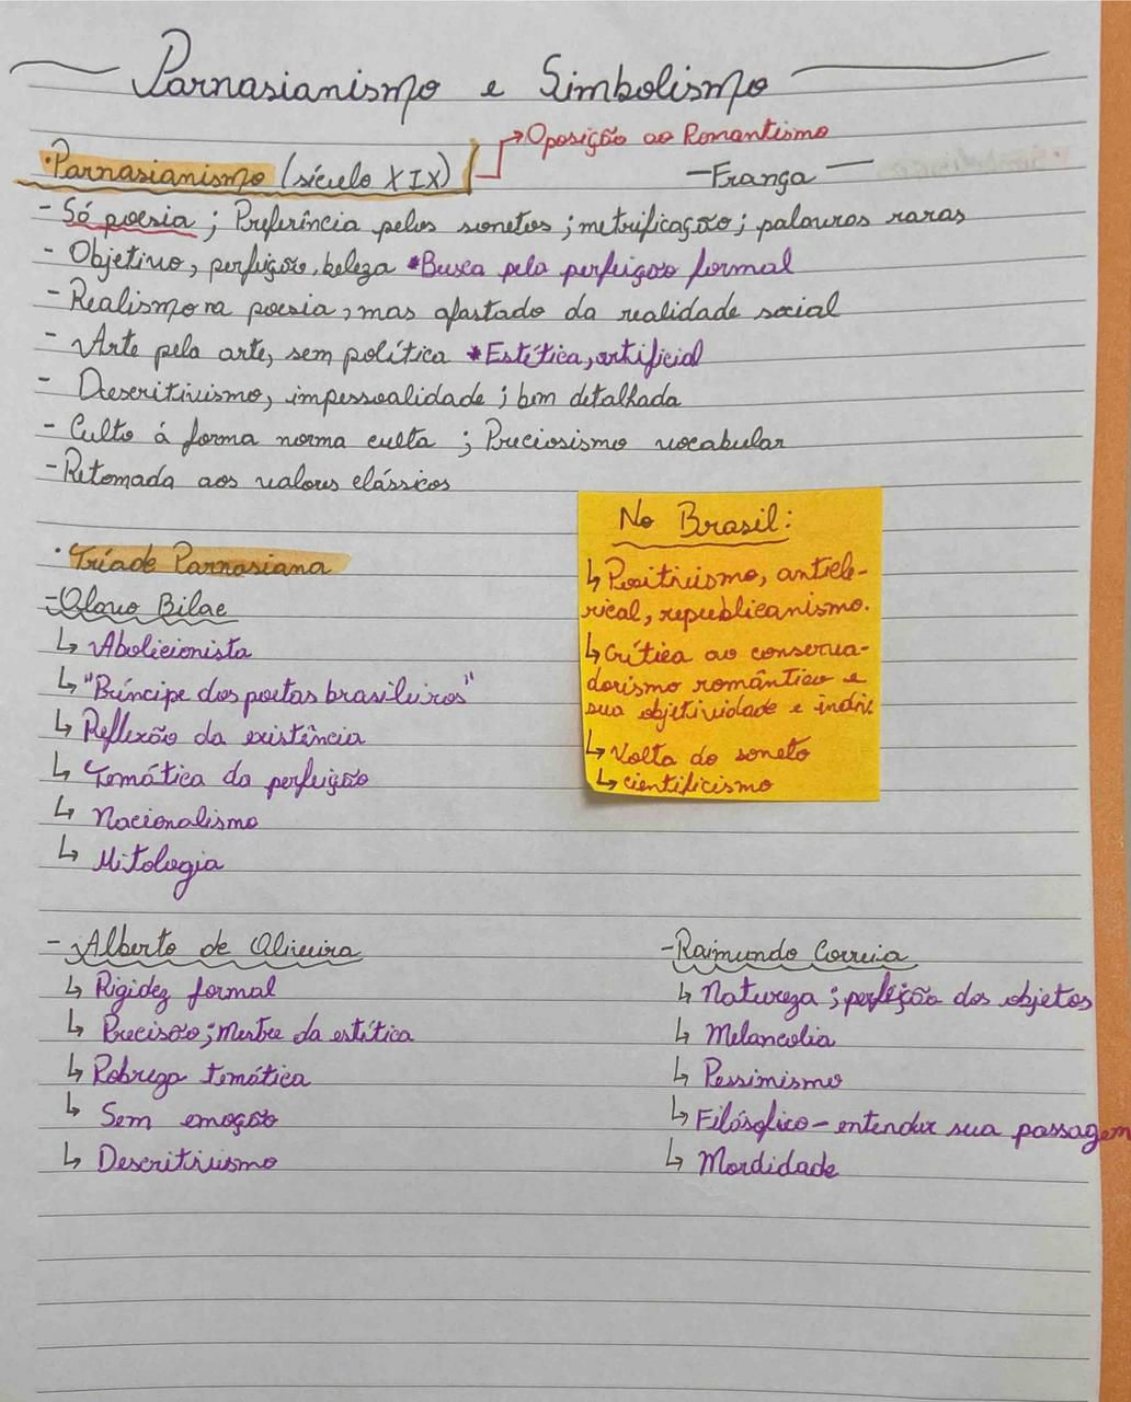 Parnasianismo e Simbolismo
Oposição ao Romantismo
• Parnasianismo (século XIX)
- França -
- Só poesia ; Preferência pelos sonetos ; metrificação ; palavras raras
- Objetivo, perfeição, beleza *Busca pela perfeição formal
- Realismo na poesia, mas afastado da realidade social
- Arte pela arte, sem política *Estética, artificial
- Descritivismo, impessoalidade ; bem detalhada
- Culto á forma norma culta ; Preciosismo vocabular
- Retomada aos valores clássicos
• Tríade Parnasiana
- Olavo Bilac
↳ Abolicionista
↳ "Príncipe dos poetas brasileiros"
↳ Reflexão da existência
↳ Temática da perfeição
↳ Nacionalismo
↳ Mitologia
No Brasil:
↳ Positivismo, anticle-
rical, republicanismo.
↳ Crítica ao conserva-
dorismo romântico e
sua objetividade e indivi
↳ Volta do soneto
↳ cientificismo
- Alberto de Oliveira
↳ Rigidez formal
↳ Precisão ; Mestre da estética
↳ Pobreza temática
↳ Sem emoção
↳ Descritivismo
- Raimundo Correia
↳ Natureza ; perfeição dos objetos
↳ Melancolia
↳ Pessimismo
↳ Filósofico - entender sua passagem
↳ Mordidade